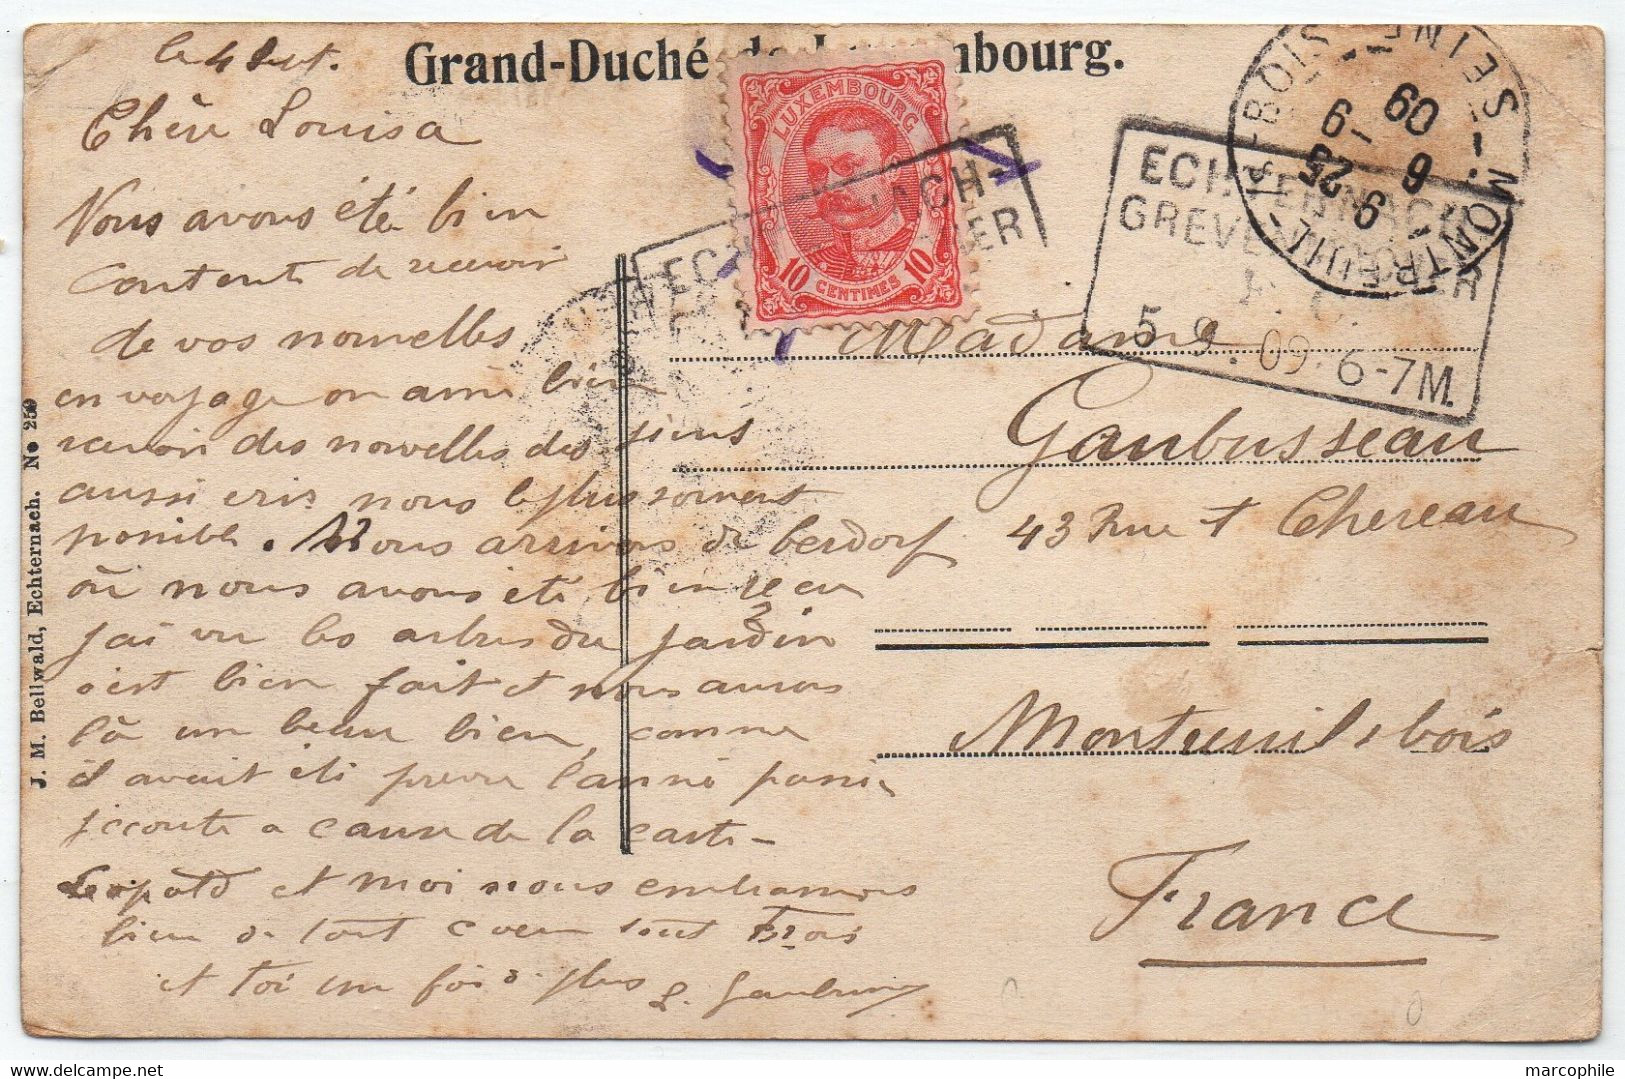 le 4 Sept.
Grand-Duché de Luxembourg.
Chère Louisa
Nous avons été bien
contents de recevoir
de vos nouvelles
en voyage on aime bien
recevoir des nouvelles des siens
aussi nous le plus souvent
possible. Nous arrivons de berdorf
où nous avons été bien recu
j'ai vu les arbres du jardin
c'est bien fait et nous aurons
là un beau bien, comme
il avait été l'anné passé
a cause de la carte
Leopold et moi nous embrassons
bien de tout cœur tout Trois
et toi une fois de plus L.
LUXEMBOURG
10 CENTIMES 10
ECHTERNACH-
ECHTERNACH-
GREVENMACHER
5.9.09. 6-7M.
MONTREUIL-S-BOIS - SEINE
9 25
6 -9
09
Madame
Gaubusseau
43 Rue Chereau
Montreuil s bois
France
J. M. Bellwald, Echternach. No 259
marcophile